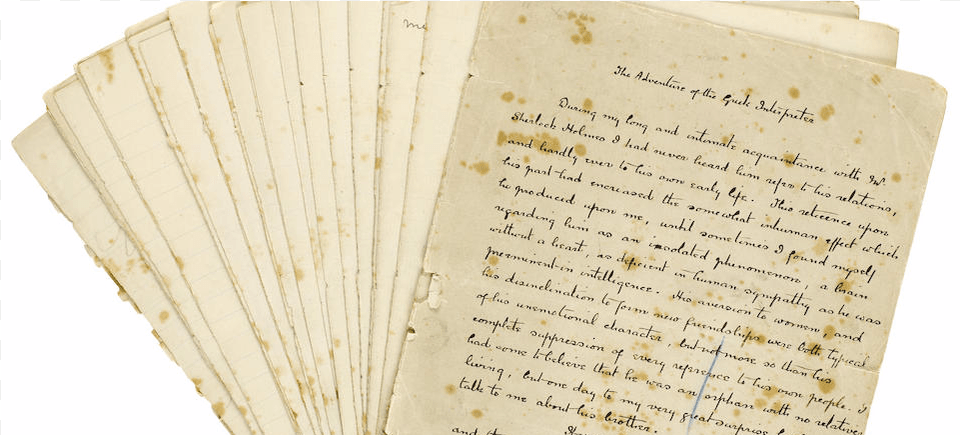 me
The Adventure of the Greek Interpreter
During my long and intimate acquaintance with Mr.
Sherlock Holmes I had never heard him refer to his relations,
and hardly ever to his own early life. This reticence upon
his part had increased the somewhat inhuman effect which
he produced upon me, until sometimes I found myself
regarding him as an isolated phenomenon, a brain
without a heart, as deficient in human sympathy as he was
preeminent in intelligence. His aversion to women, and
his disinclination to form new friendships were both typical
of his unemotional character, but not more so than his
complete suppression of every reference to his own people. I
had come to believe that he was an orphan with no relatives
living, but one day to my very great surprise he
talk to me about his brother.
and the